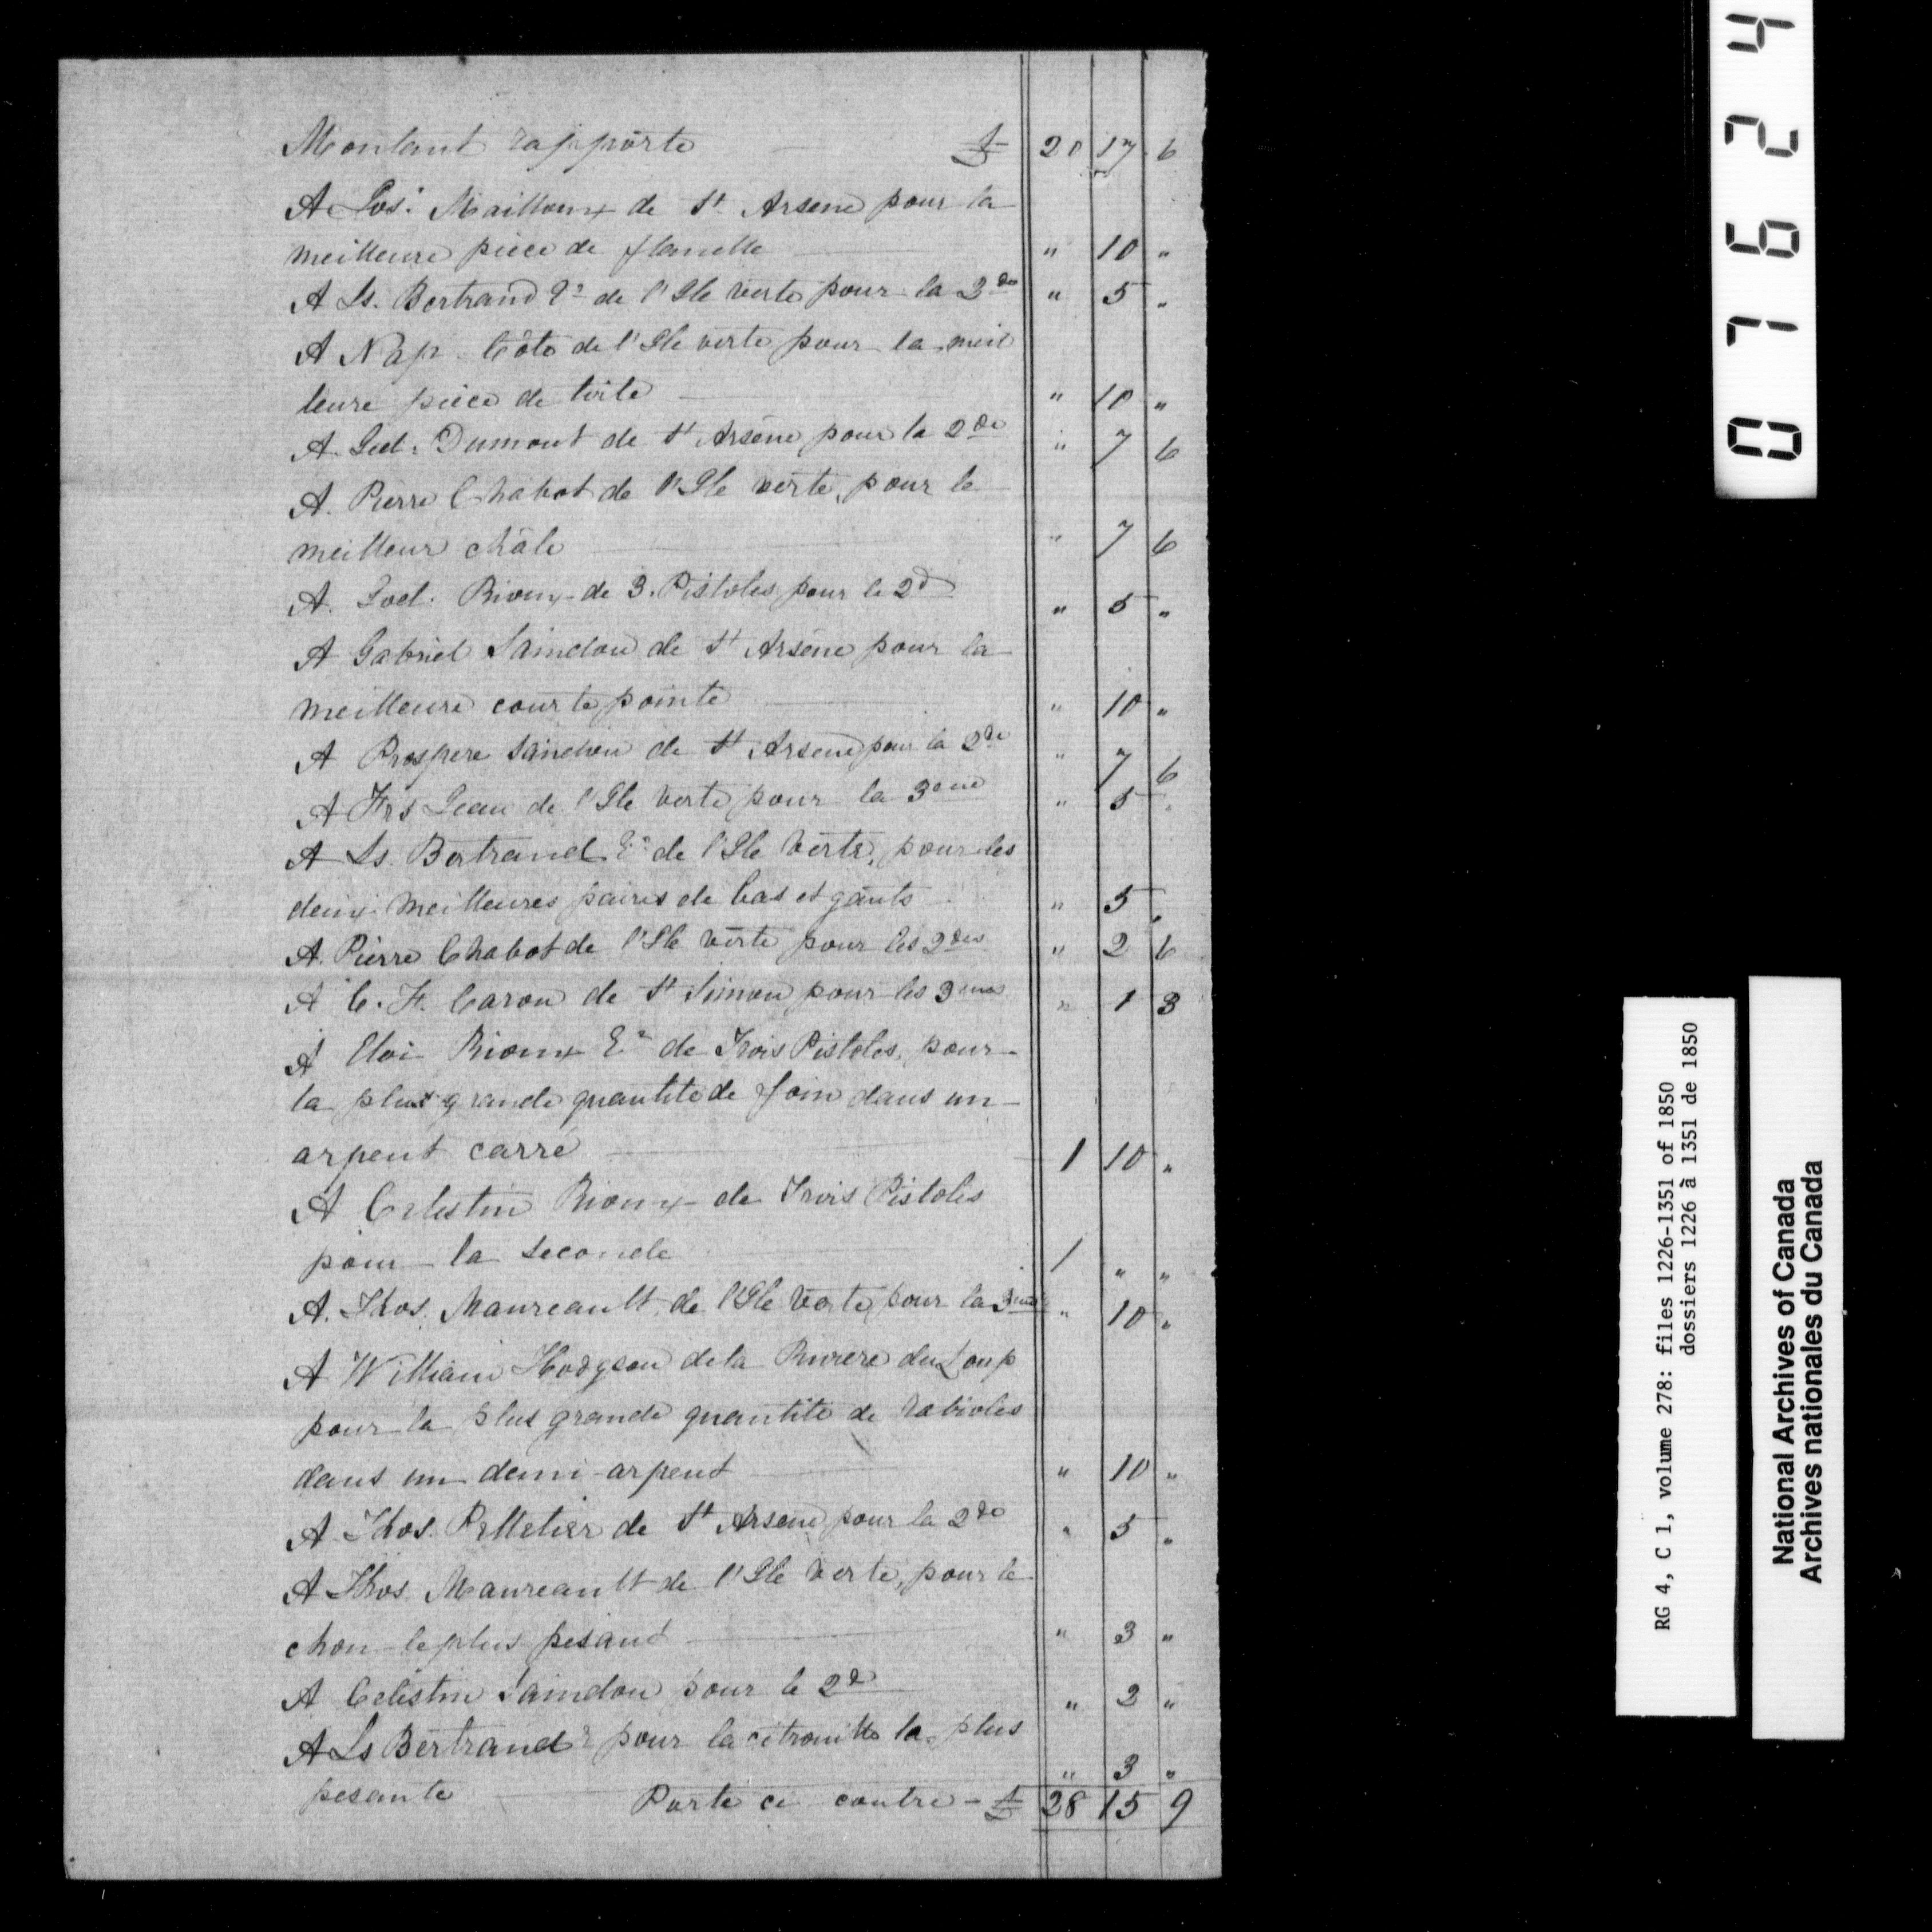 Montant rapporté £ 20 17 6
A Jos: Mailloux de St Arsene pour la
meilleure pièce de flanelle " 10 "
A Ls. Bertrand Er de l'Ile verte pour la 2de " 5 "
A Nap. Côté de l'Ile verte pour la meil
leure pièce de toile " 10 "
A. Dumont de St Arsène pour la 2de " 7 6
A. Pierre Chabot de l'Ile verte, pour le
meilleur châle " 7 6
A. Rioux de 3. Pistoles pour le 2d " 5 "
A Gabriel Saindon de St Arsène pour la
meilleure courte pointe " 10 "
A Prospere Saindon de St Arsene pour la 2de " 7 6
A Frs Jean de l'Ile Verte pour la 3eme " 5 "
A Ls. Bertrand Er de l'Ile Verte, pour les
deux meilleures paires de bas et gants " 5 "
A. Pierre Chabot de l'Ile Verte pour les 2des " 2 6
A C. F. Caron de St Simon pour les 3emes " 1 3
A Eloi Rioux Er de Trois Pistoles, pour
la plus grande quantité de foin dans un
arpent carré 1 10 "
A Celestin Rioux de Trois Pistoles
pour la seconde 1 " "
A. Thos. Maureault de l'Ile Verte pour la 3eme " 10 "
A William Hodgson de la Riviere du Loup
pour la plus grande quantité de rabioles
dans un demi-arpent " 10 "
A Thos. Pelletier de St Arsene pour la 2de " 5 "
A Thos. Maureault de l'Ile Verte, pour le
chou le plus pesant " 3 "
A Celestin Saindon pour le 2d " 2 "
A Ls Bertrand Er pour la citrouille la plus
pesante " 3 "
Porté ci contre - £ 28 15 9
07624
RG 4, C 1, volume 278: files 1226-1351 of 1850
dossiers 1226 à 1351 de 1850
National Archives of Canada
Archives nationales du Canada